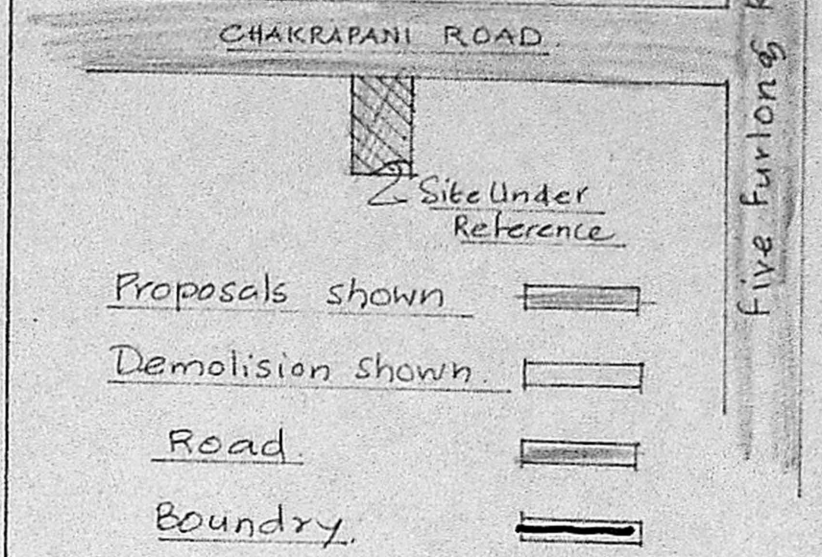 CHAKRAPANI ROAD.
Five Furlong
Site Under
Reference
Proposals shown
Demolision shown.
Road.
Boundry.